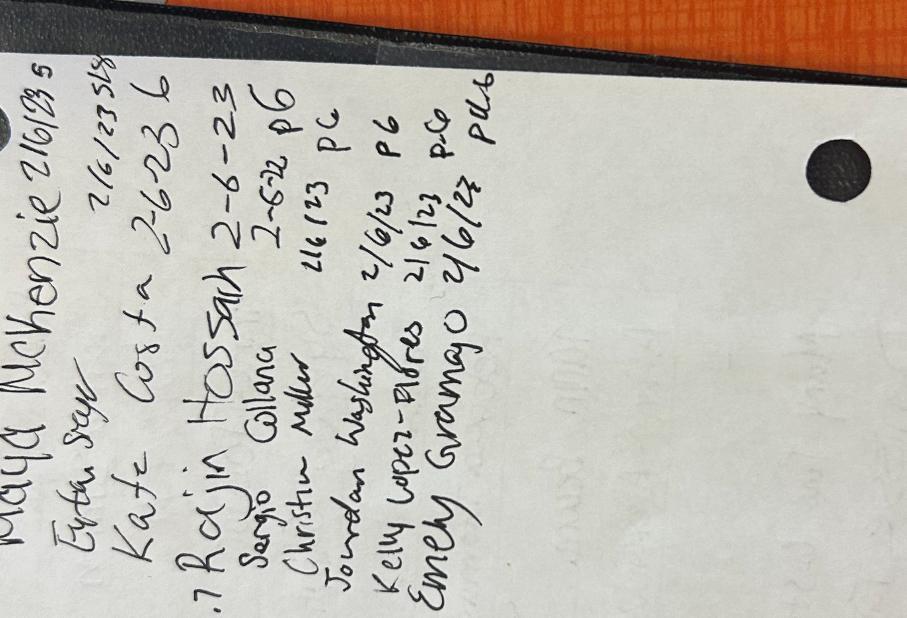 Maya McKenzie 2/6/23 5
Eytan 2/6/23
Kate Costa 2-6-23 6
.7 Rajin Hossain 2-6-23
Sergio Collana 2-6-22 P6
Christian Miller 2/6/23 P6
Jourdan Washington 2/6/23 P6
Kelly Lopez-Flores 2/6/23 P.6
Emely Gramajo 2/6/23